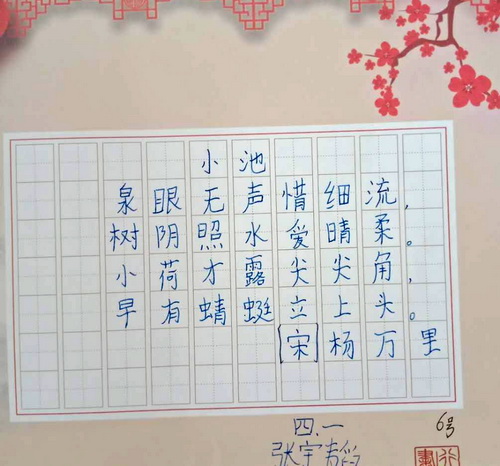 小池
泉眼无声惜细流,
树阴照水爱晴柔。
小荷才露尖尖角,
早有蜻蜓立上头。
[宋]杨万里
6号
四.一
张宇